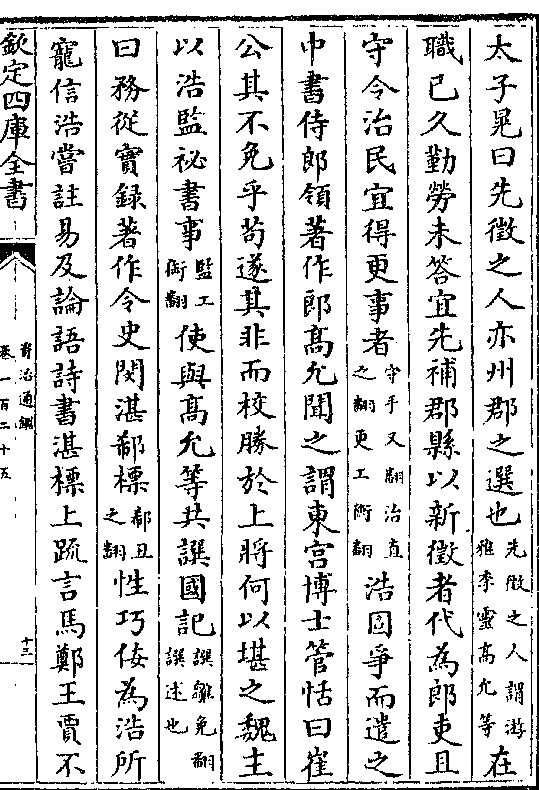 太子晃曰先徵之人亦州郡之選也先徵之人謂游雅李靈高允等在
職已久勤勞未答宜先補郡縣以新徵者代為郎吏且
守令治民宜得更事者守手又翻治直之翻更工衡翻浩固爭而遣之
中書侍郎領著作郎高允聞之謂東宮博士管恬曰崔
公其不免乎苟遂其非而校勝於上將何以堪之魏主
以浩監祕書事監工銜翻使與高允等共譔國記譔雛免翻譔述也
曰務從實録著作令史閔湛郗標郗丑之翻性巧佞為浩所
寵信浩嘗註易及論語詩書湛標上疏言馬鄭王賈不
欽定四庫全書
資治通鑑
卷一百二十五
十三